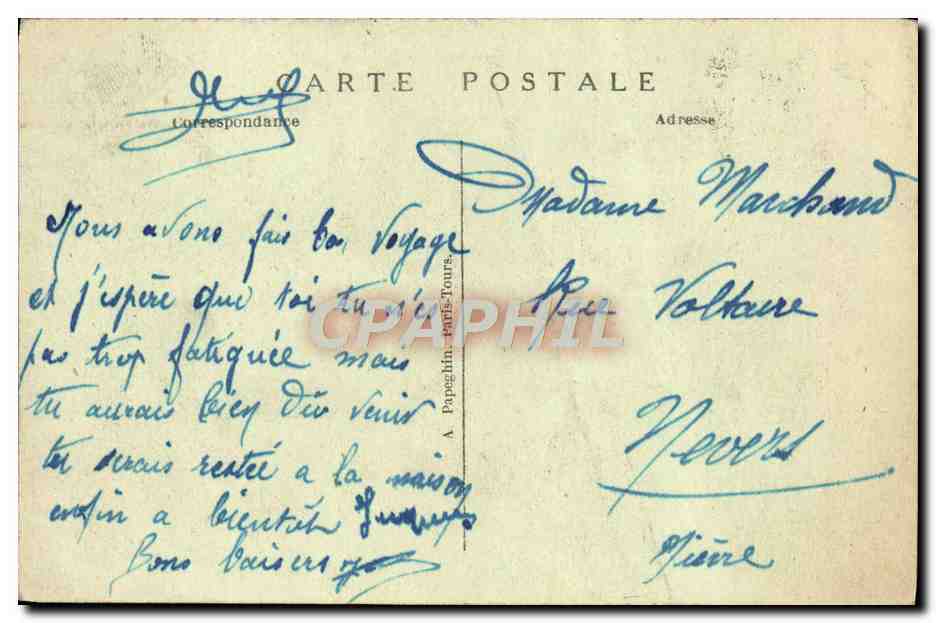 CARTE POSTALE
Correspondance
Adresse
Nous avons fais bon voyage
et j'espère que toi tu n'es
pas trop fatiguée mais
tu aurais bien dû venir
tu serais restée a la maison
enfin a bientôt Jacques
Bons baisers
A Papeghin. Paris-Tours.
Madame Marchand
Rue Voltaire
Nevers
Nièvre
CPAPHIL